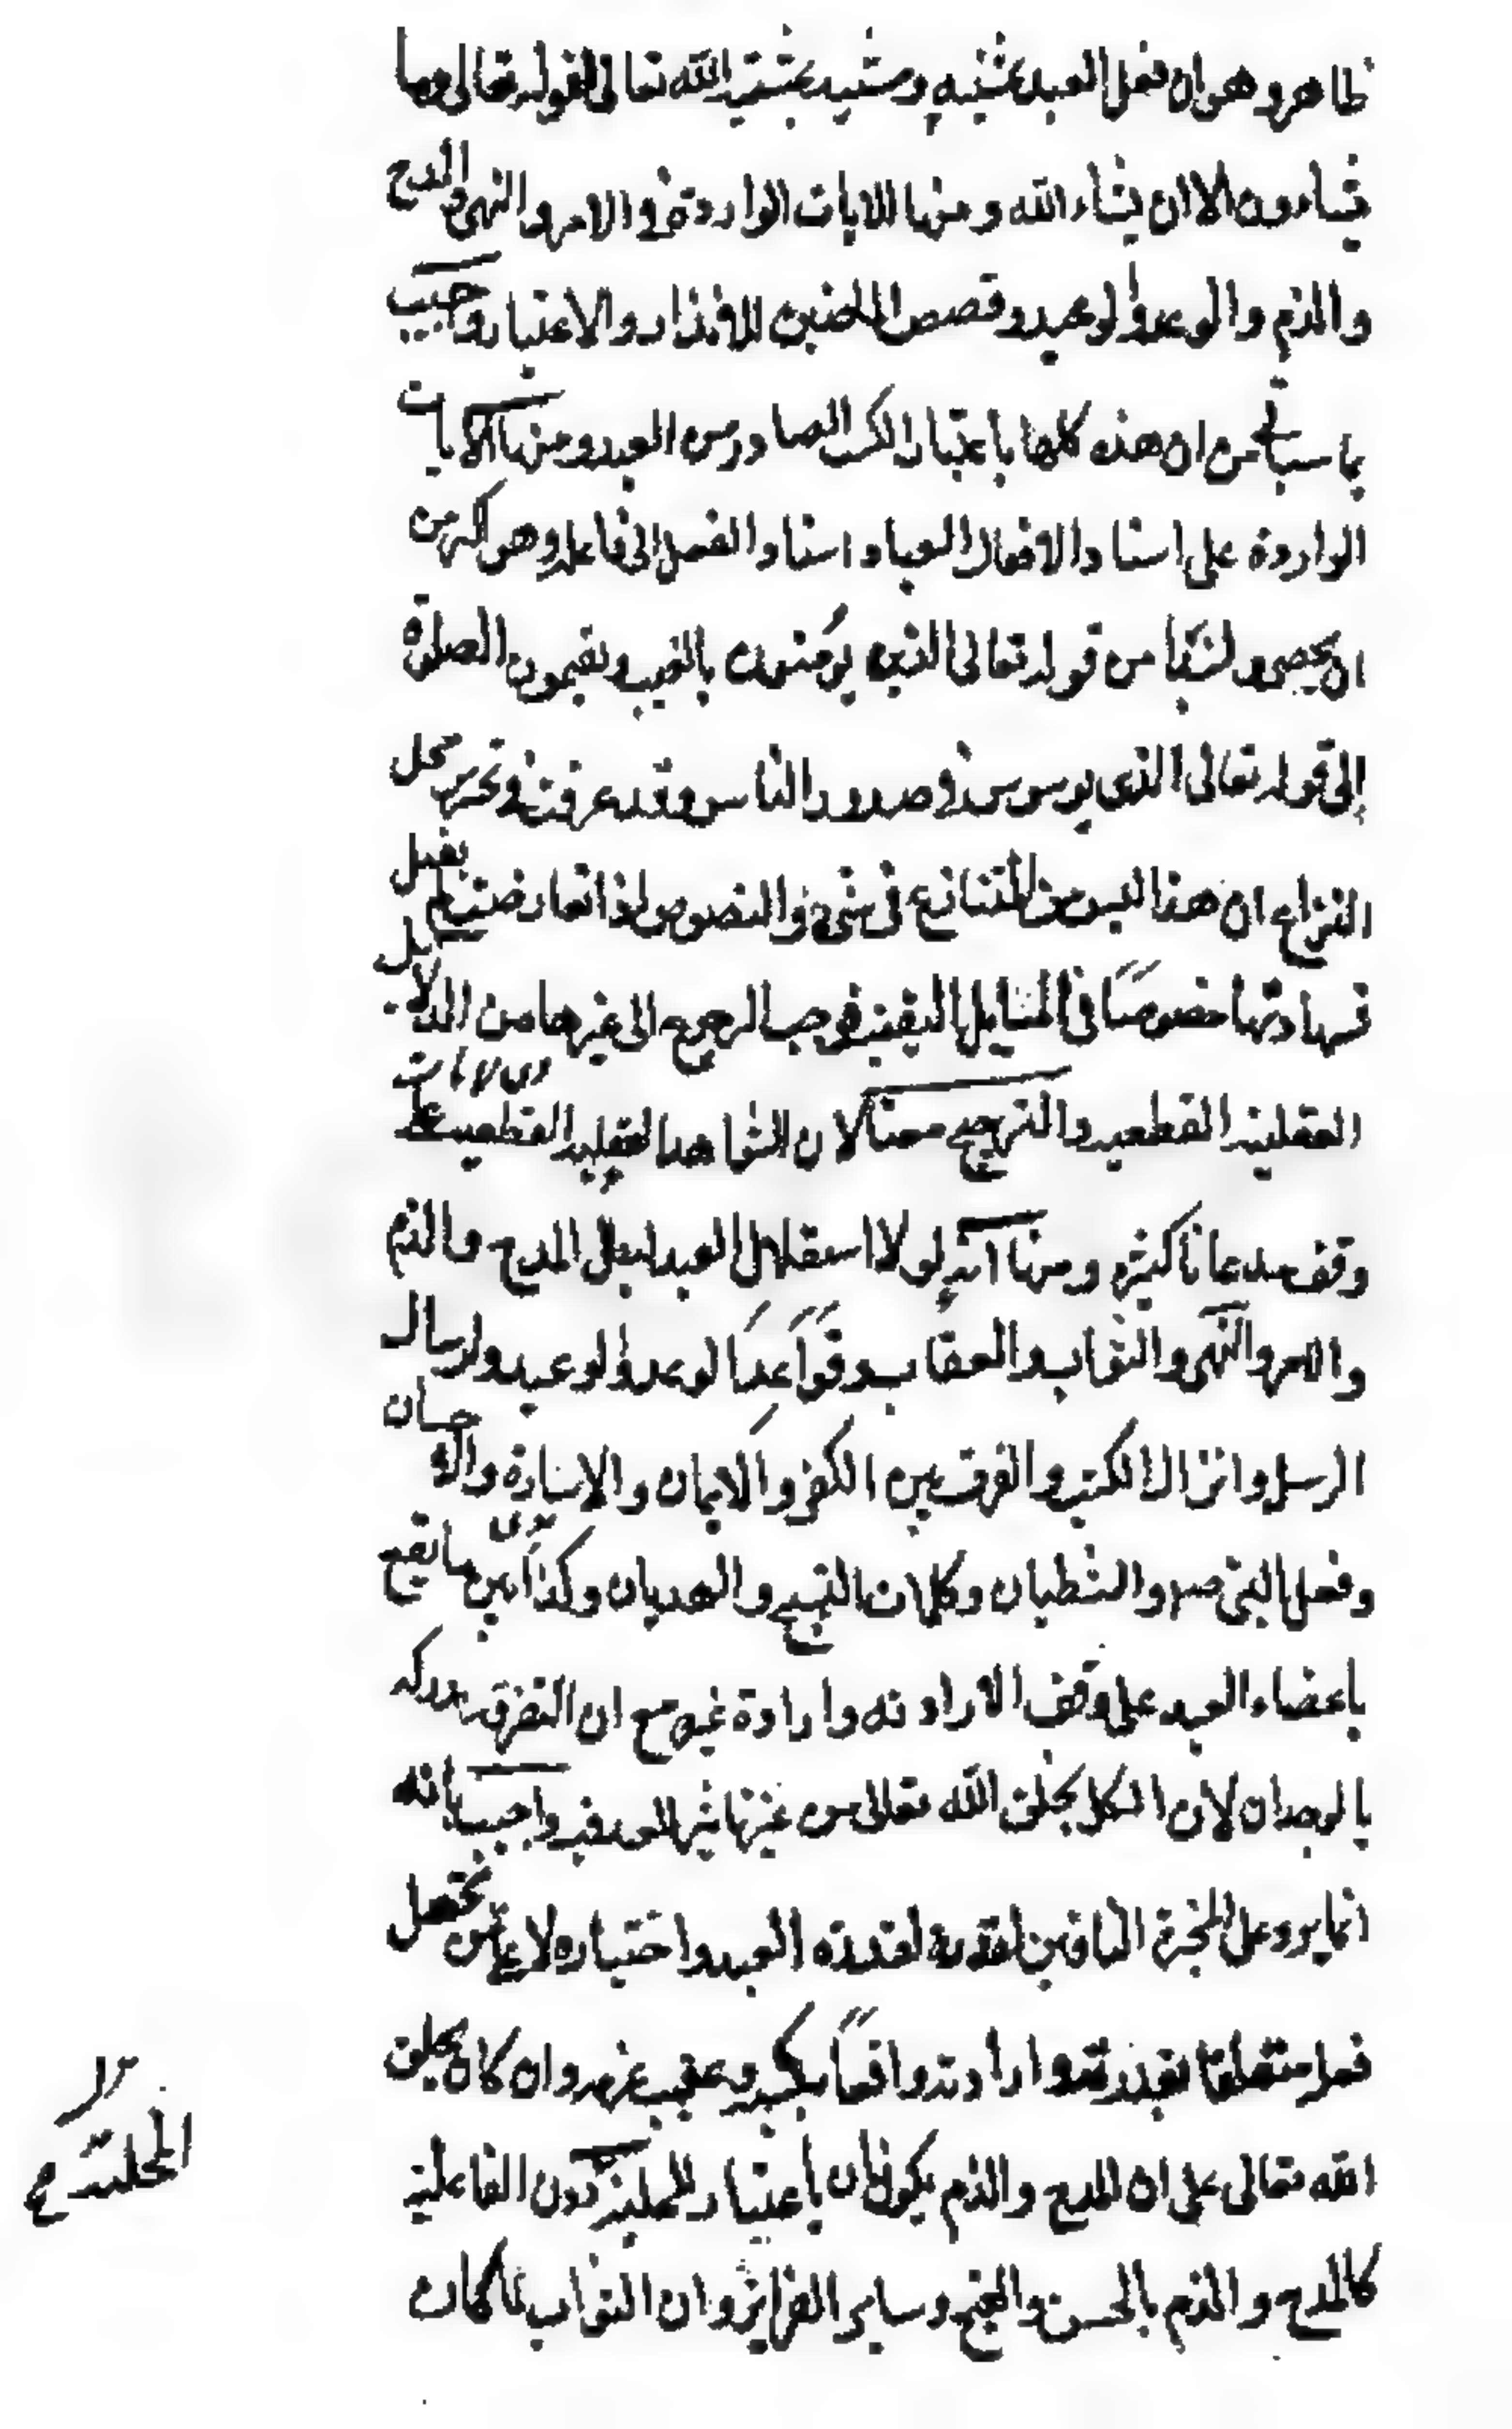 ظاهر وهو ان فعل العبد بمشيته ومشيته بمشية الله تعالى لقوله تعالى وما
يشاءون الا ان يشاء الله ومنها الايات الواردة في الامر والنهي والمدح
والذم والوعد والوعيد وقصص الماضين للانذار والاعتبار واجيب
بما سيأتي من ان هذه كلها باعتبار الكسب الصادر من العبد ومنها الايات
الواردة على اسناد الافعال العباد اسناد الفعل الى فاعله وهو اكثر من
ان يحصى ولنبدأ من قوله تعالى الذين يؤمنون بالغيب ويقيمون الصلوة
إلى قوله تعالى الذي يوسوس في صدور الناس وقد عرفت في تحرير محل
النزاع ان هذا ليس من المتنازع في شيء والنصوص اذا تعارضت لم يقبل
شهادتها خصوصًا في المسايل اليقينية فوجب الرجوع الى غيرها من الدلايل
العقلية القطعية والترجيح معنا لان الشواهد العقلية القطعية على
وفق مدعانا كثيرة ومنها انه لولا استقلال العبد لبطل المدح والذم
والامر والنهي والثواب والعقاب وفوائد الوعد والوعيد وارسال
الرسل وانزال الكتب والفرق بين الكفر والايمان والاساءة والاحسان
وفعل النبي صلعم والشطيان وكلمات التسبيح والهديان وكذا بين ما يقع
باعضاء العبد على وفق الارادته وارادة غيره مع ان التفرق مدركه
بالوجدان لان الكل بخلق الله تعالى من غير تاثير العبد فيه واجيب بانه
انما يرد على المجبرة النافين لقدرته العبد واختياره لا على من يجعل
فعله متعلقا بقدرته وارادته واقعًا بكسبه وعقيب عزمه وان كان بخلق
الله تعالى على ان المدح والذم يكونان باعتبار المحلية دون الفاعلية
كالمدح والذم بالحسن والقبح وساير الغرايز وان الثواب لما كان
المحلية